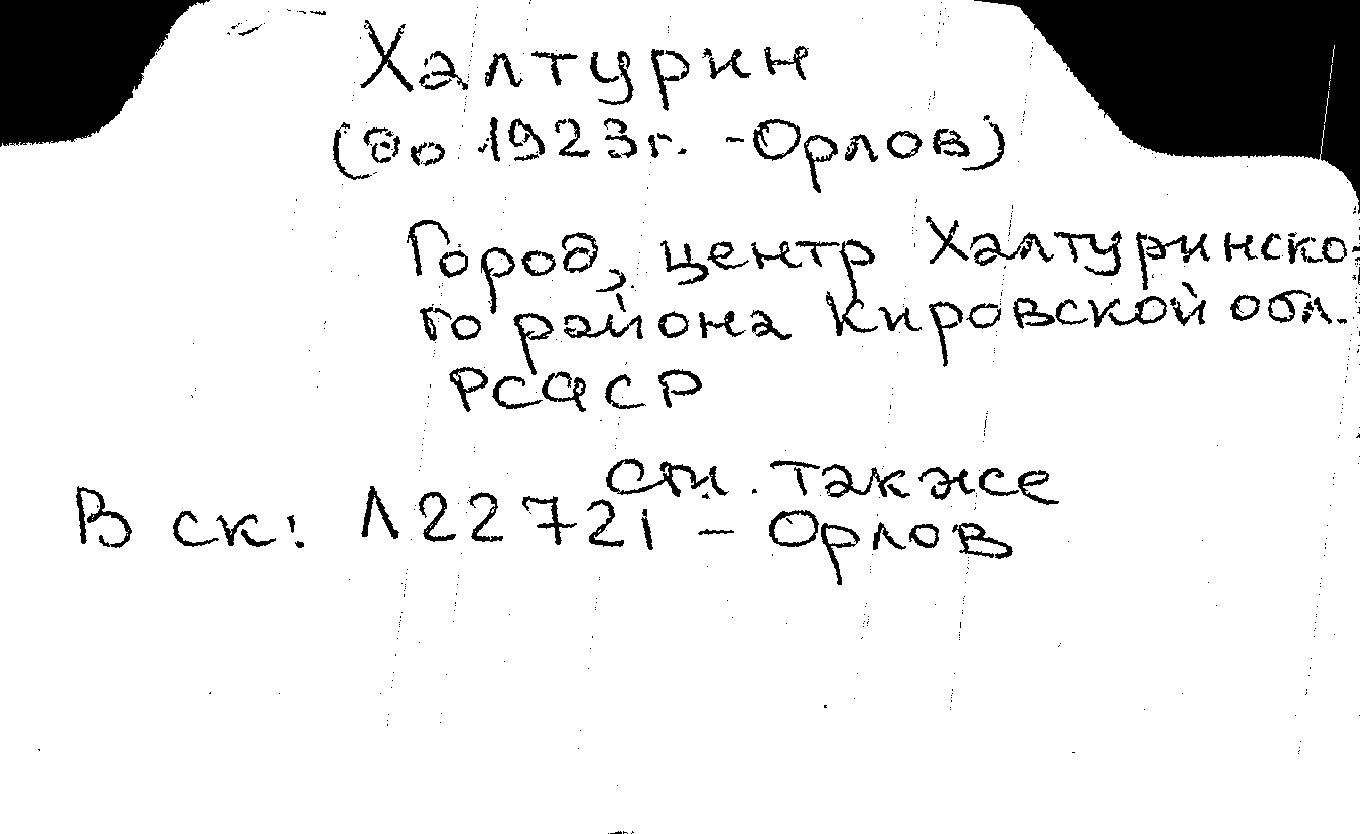 Халтурин
(до 1923г. -Орлов)
Город, центр Халтуринско-
го района Кировской обл.
РСФСР
см. также
В ск: Л22721 – Орлов